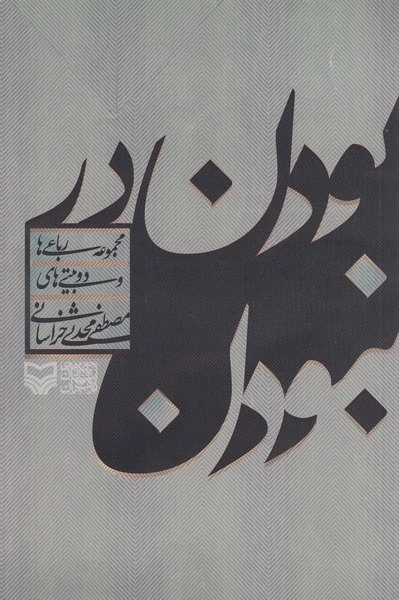 بودن در
نبودن
مجموعه رباعی‌ها
و دوبیتی‌های
مصطفی محدثی خراسانی